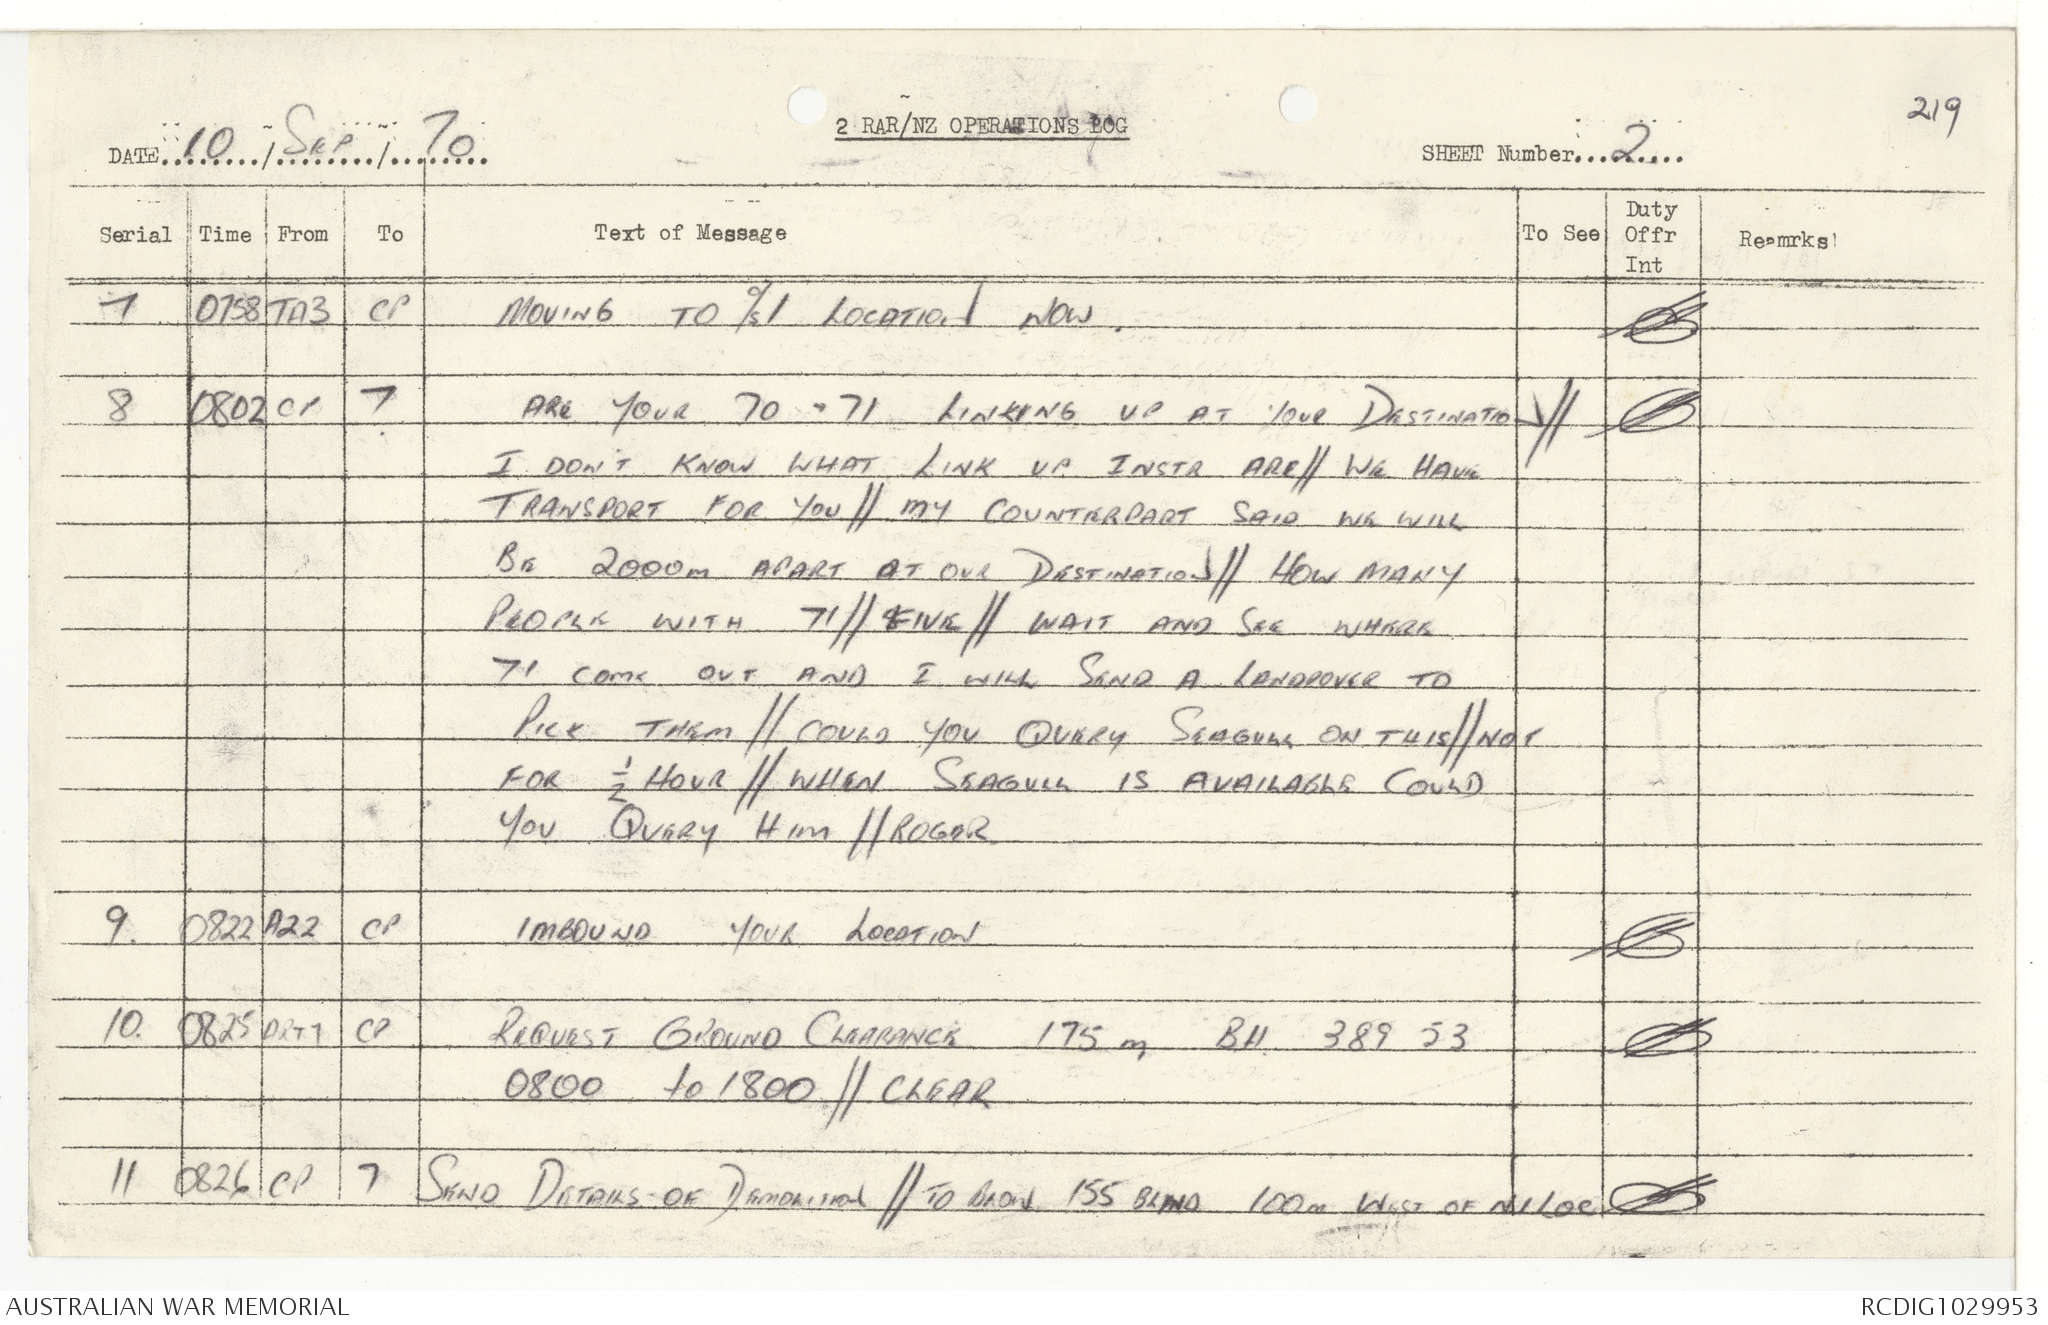 219
2 RAR/NZ OPERATIONS LOG
DATE 10 / SEP / 70
SHEET Number 2
Serial Time From To Text of Message To See Duty Offr Int Reamrks
7 0758 TA3 CP MOVING TO LOCATION NOW.
8 0802 CP 7 ARE YOUR 70 + 71 LINKING UP AT YOUR DESTINATION//
I DON'T KNOW WHAT LINK UP INSTR ARE// WE HAVE
TRANSPORT FOR YOU // MY COUNTERPART SAID WE WILL
BE 2000m APART AT OUR DESTINATION // HOW MANY
PEOPLE WITH 71 // FIVE // WAIT AND SEE WHERE
71 COME OUT AND I WILL SEND A LANDROVER TO
PICK THEM // COULD YOU QUERY SEAGULL ON THIS // NOT
FOR ½ HOUR // WHEN SEAGULL IS AVAILABLE COULD
YOU QUERY HIM // ROGER
9. 0822 A22 CP IMBOUND YOUR LOCATION
10. 0825 CP REQUEST GROUND CLEARANCE 175 m BH 389 53
0800 to 1800 // CLEAR
11 0826 CP 7 SEND DETAILS OF DEMOLITION // TO BLOW 155 BLIND 100m WEST OF MY LOC
AUSTRALIAN WAR MEMORIAL
RCDIG1029953